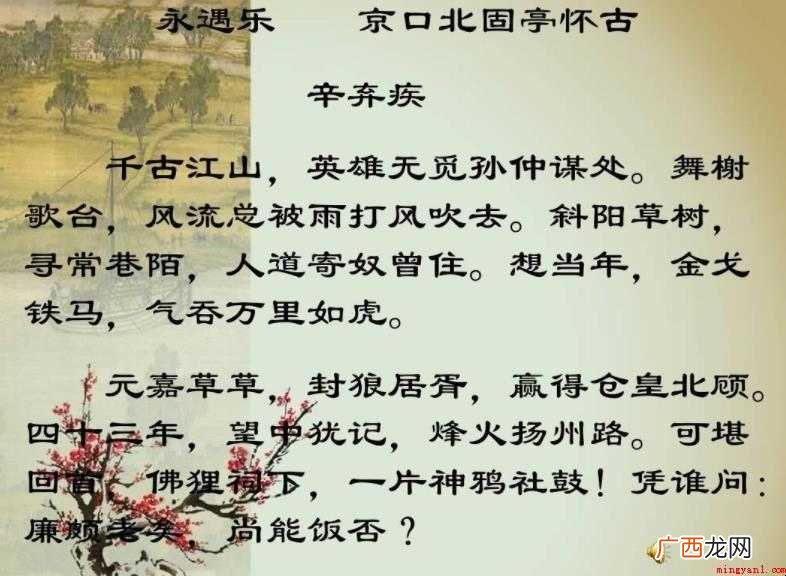 永遇乐 京口北固亭怀古
辛弃疾
千古江山，英雄无觅孙仲谋处。舞榭
歌台，风流总被雨打风吹去。斜阳草树，
寻常巷陌，人道寄奴曾住。想当年，金戈
铁马，气吞万里如虎。
元嘉草草，封狼居胥，赢得仓皇北顾。
四十三年，望中犹记，烽火扬州路。可堪
回首，佛狸祠下，一片神鸦社鼓！凭谁问：
廉颇老矣，尚能饭否？
广西龙网
mingyan1.com